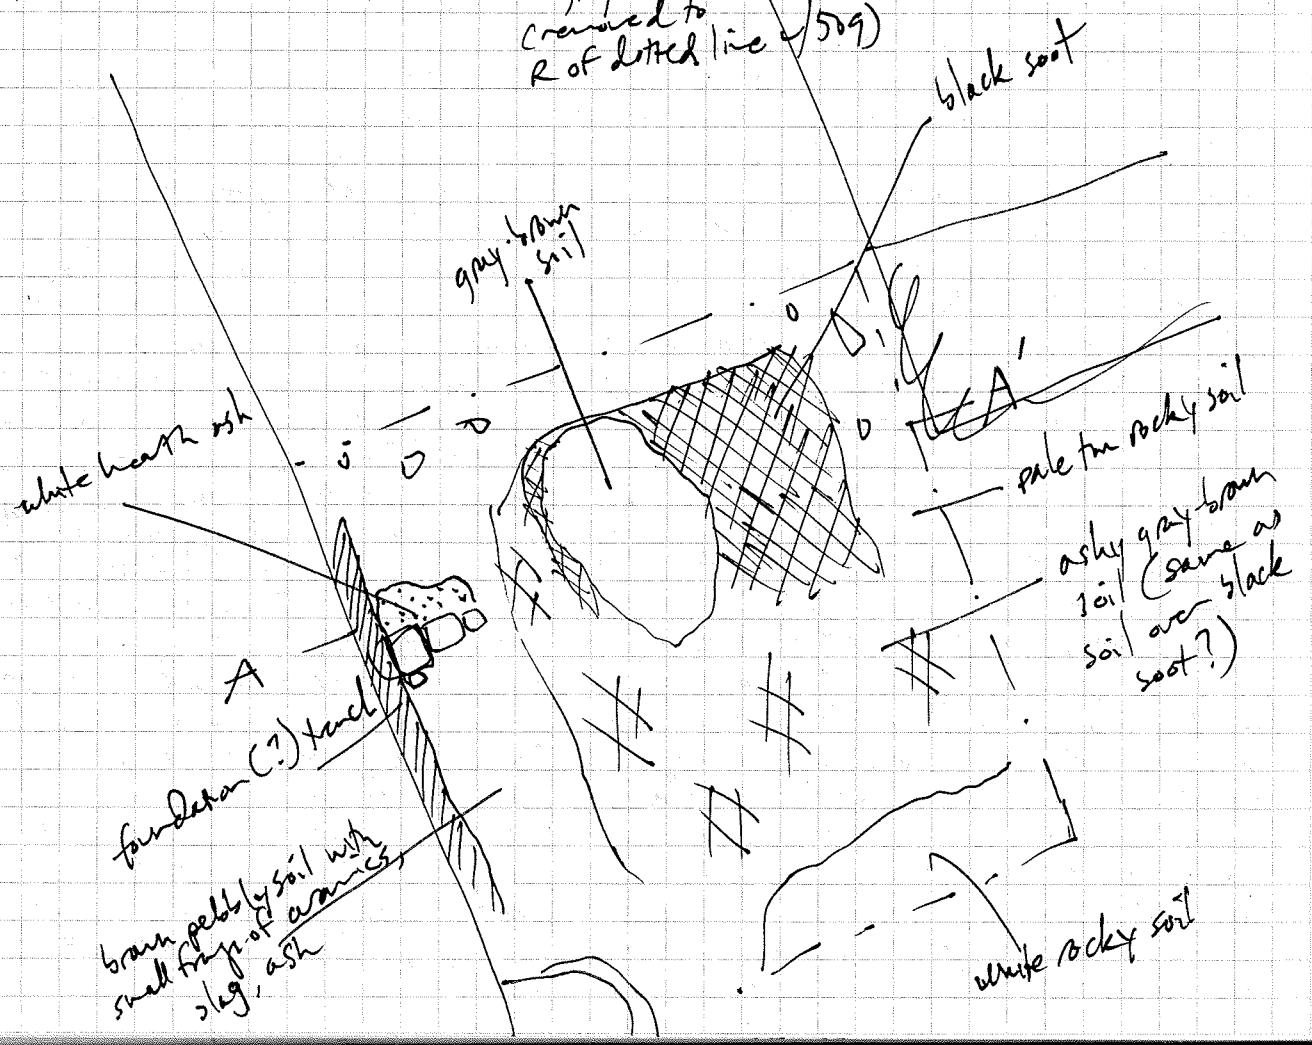 (removed to
R of dotted line ~150g)
black soot
gray-brown
soil
white hearth ash
A'
pale tan rocky soil
ashy gray-brown
soil (same as
soil over black
soot?)
A
foundation (?) trench
brown pebbly soil with
small frags. of ceramics,
slag, ash
white rocky soil